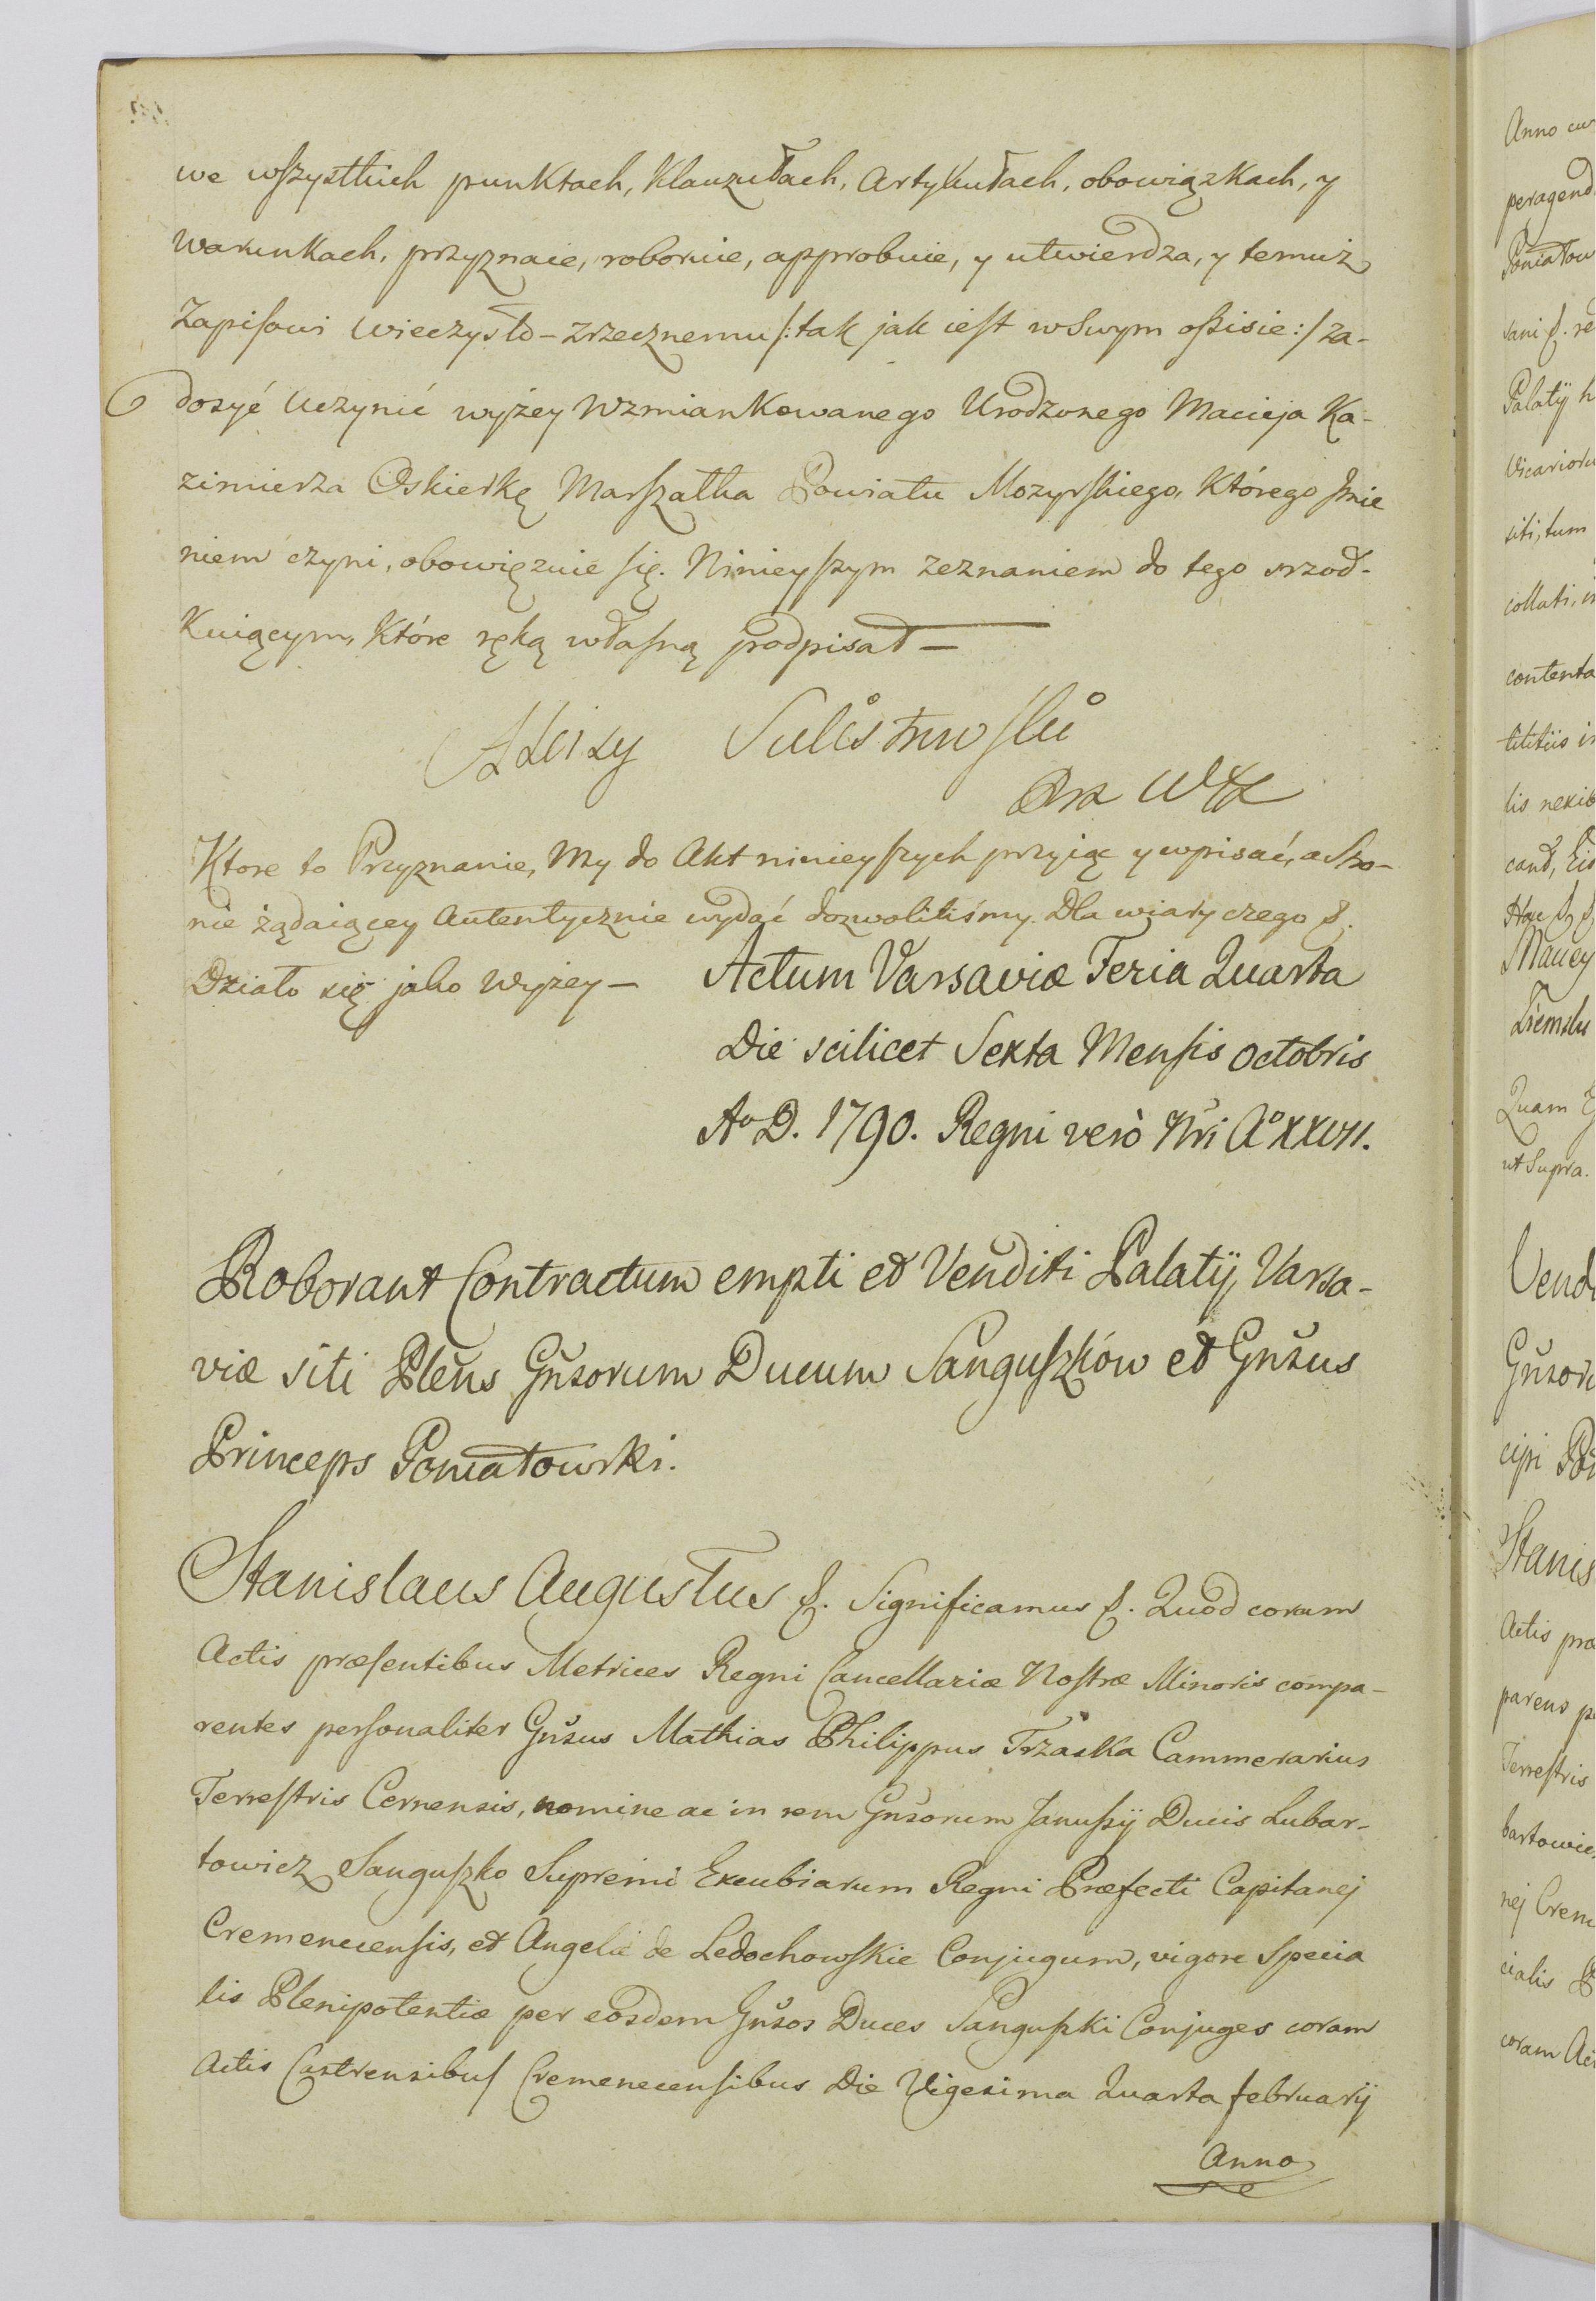 we wszystkich punktach, Klauzułach, Artykułach, obowiązkach, y
Warunkach, przyznaie, roboruie, approbuie, y utwierdza, y temuż
Zapisowi wieczysto-zrzecznemu /: tak jak iest w swym opisie :/ za-
dosyć uczynić wyżey Wzmiankowanego Urodzonego Macieja Ka-
zimierza Oskierkę Marszałka Powiatu Mozyrskiego, którego Jmie
niem czyni, obowięzuie się. Ninieyszym zeznaniem do tego srzod-
kuiącym, które ręką własną podpisał —
Aloizy Sulistrowski
Ktore to Przyznanie, My do Akt ninieyszych przyiąć y wpisać, a Stro-
nie żądaiącey Autentycznie wydać dozwoliliśmy. Dla wiary czego &.
Działo się jako Wyżey —
Actum Varsaviæ Feria Quarta
Die scilicet Sexta Mensis Octobris
Ao D. 1790. Regni verò Nri Ao XXVII.
Roborant Contractum empti et Venditi Palatij Varsa-
viæ siti Plens Gnsorum Ducum Sanguszków et Gnsus
Princeps Poniatowski.
Stanislaus Augustus &. Significamus &. Quod coram
Actis præsentibus Metrices Regni Cancellariæ Nostræ Minoris compa-
rentes personaliter Gnsus Mathias Philippus Trzaska Cammerarius
Terrestris Cernensis, nomine ac in rem Gnsorum Januszij Ducis Lubar-
towicz Sanguszko Supremi Excubiarum Regni Præfecti Capitanej
Cremenecensis, et Angelæ de Ledochowskie Conjugum, vigore Specia
lis Plenipotentiæ per eosdem Gnsos Duces Sanguszki Conjuges coram
Actis Castrensibus Cremenecensibus Die Vigesima Quarta februarij
Anno
Anno
peragend
Poniatow
Palatij
Vicarioru
siti, tum
collati,
contenta
titutiis
lis nexib
Maciey
Quam
ut Supra.
Vend
Gnsor
cipi
Stanis
Actis
parens
Terrestris
bartowicz
nej Crem
cialis
coram